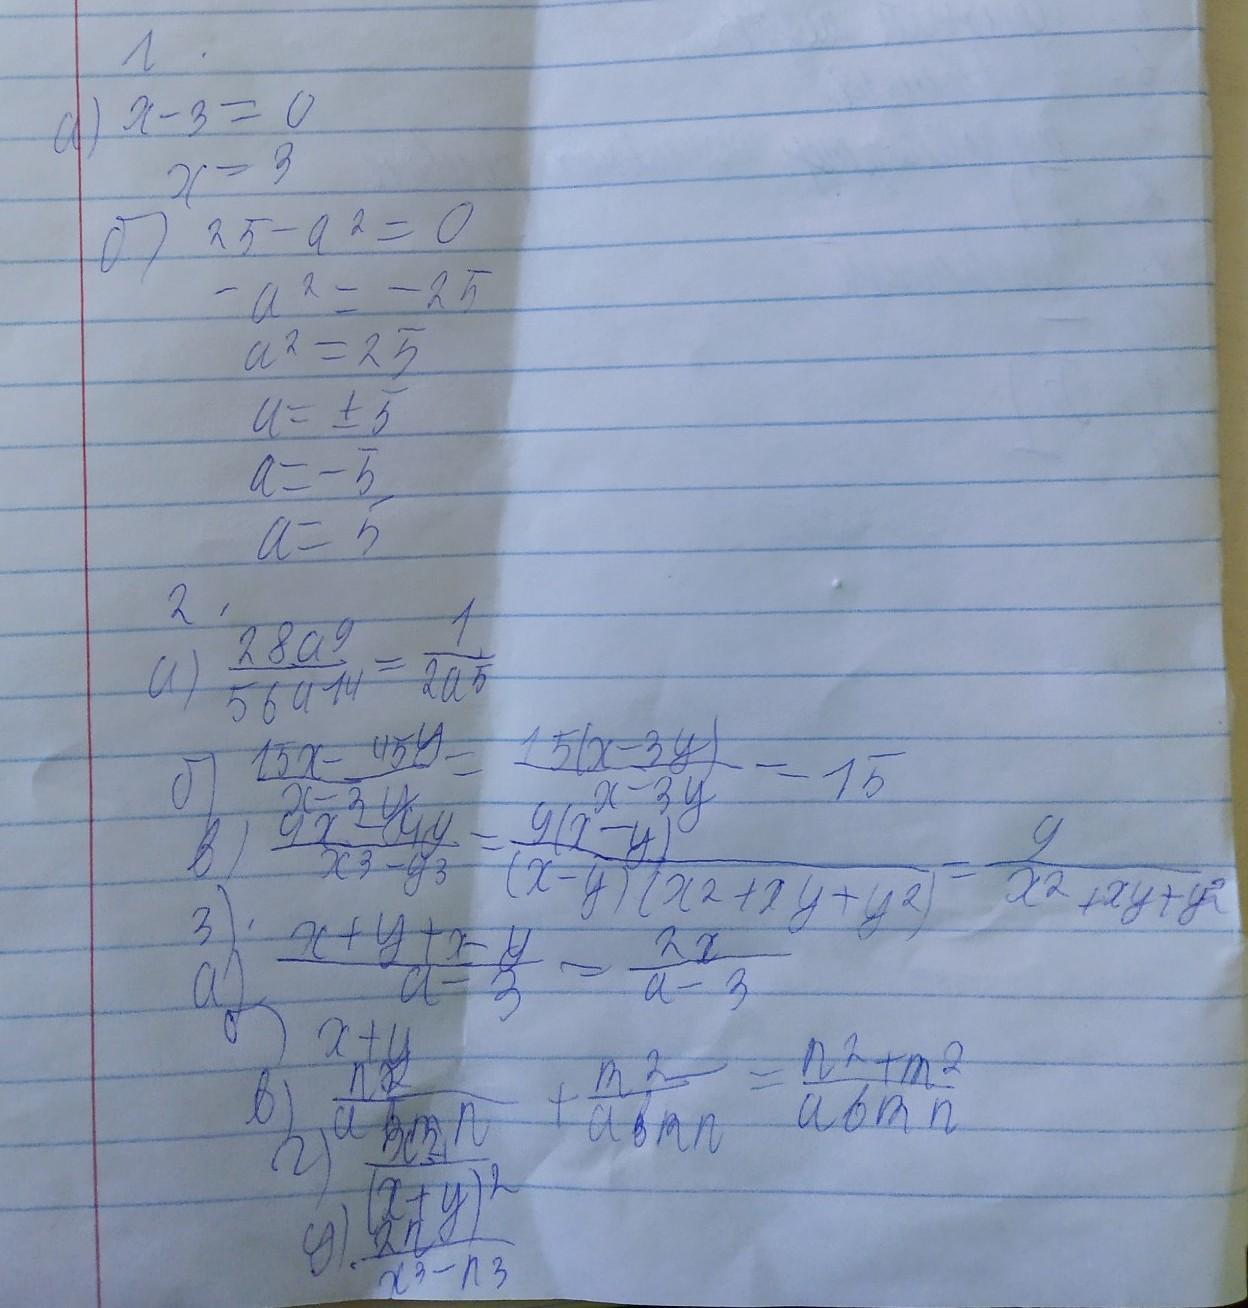 1.
а) x-3=0
x=3
б) 25-a²=0
-a²=-25
a²=25
a=±5
a=-5
a=5
2.
а) 28a⁹/56a¹⁴ = 1/2a⁵
б) 15x-45y/x-3y = 15(x-3y)/x-3y = 15
в) 9x-9y/x³-y³ = 9(x-y)/(x-y)(x²+xy+y²) = 9/x²+xy+y²
3).
а) x+y+x-y/a-3 = 2x/a-3
б) x+y
в) n²/abmn + m²/abmn = n²+m²/abmn
г) /(x+y)²
д). 2n/x³-n³